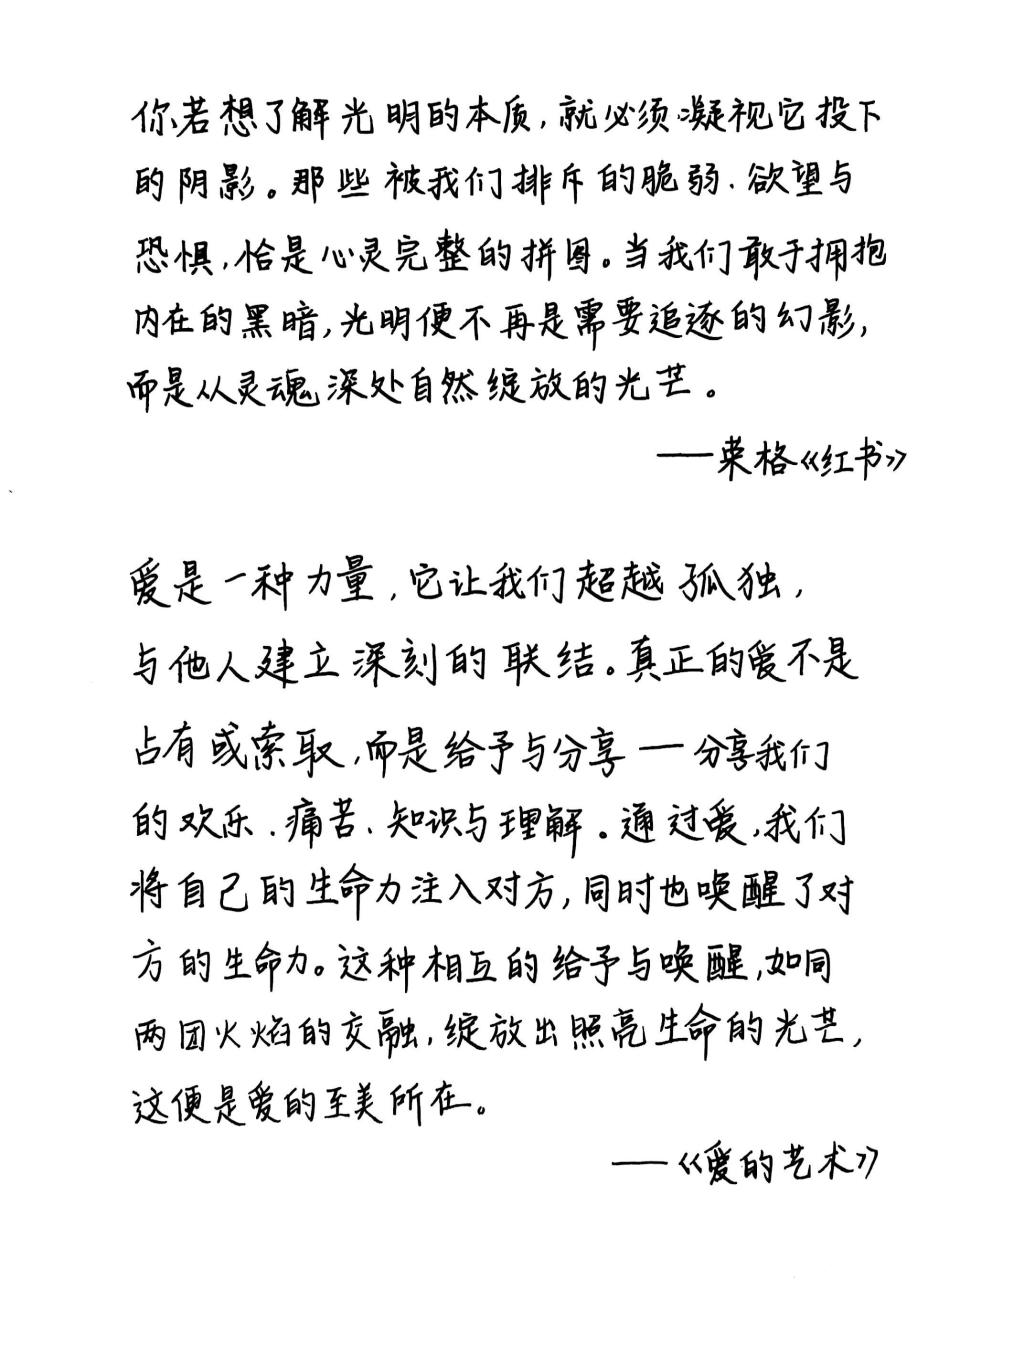 你若想了解光明的本质，就必须凝视它投下
的阴影。那些被我们排斥的脆弱、欲望与
恐惧，恰是心灵完整的拼图。当我们敢于拥抱
内在的黑暗，光明便不再是需要追逐的幻影，
而是从灵魂深处自然绽放的光芒。
——荣格《红书》
爱是一种力量，它让我们超越孤独，
与他人建立深刻的联结。真正的爱不是
占有或索取，而是给予与分享——分享我们
的欢乐、痛苦、知识与理解。通过爱，我们
将自己的生命力注入对方，同时也唤醒了对
方的生命力。这种相互的给予与唤醒，如同
两团火焰的交融，绽放出照亮生命的光芒，
这便是爱的至美所在。
——《爱的艺术》